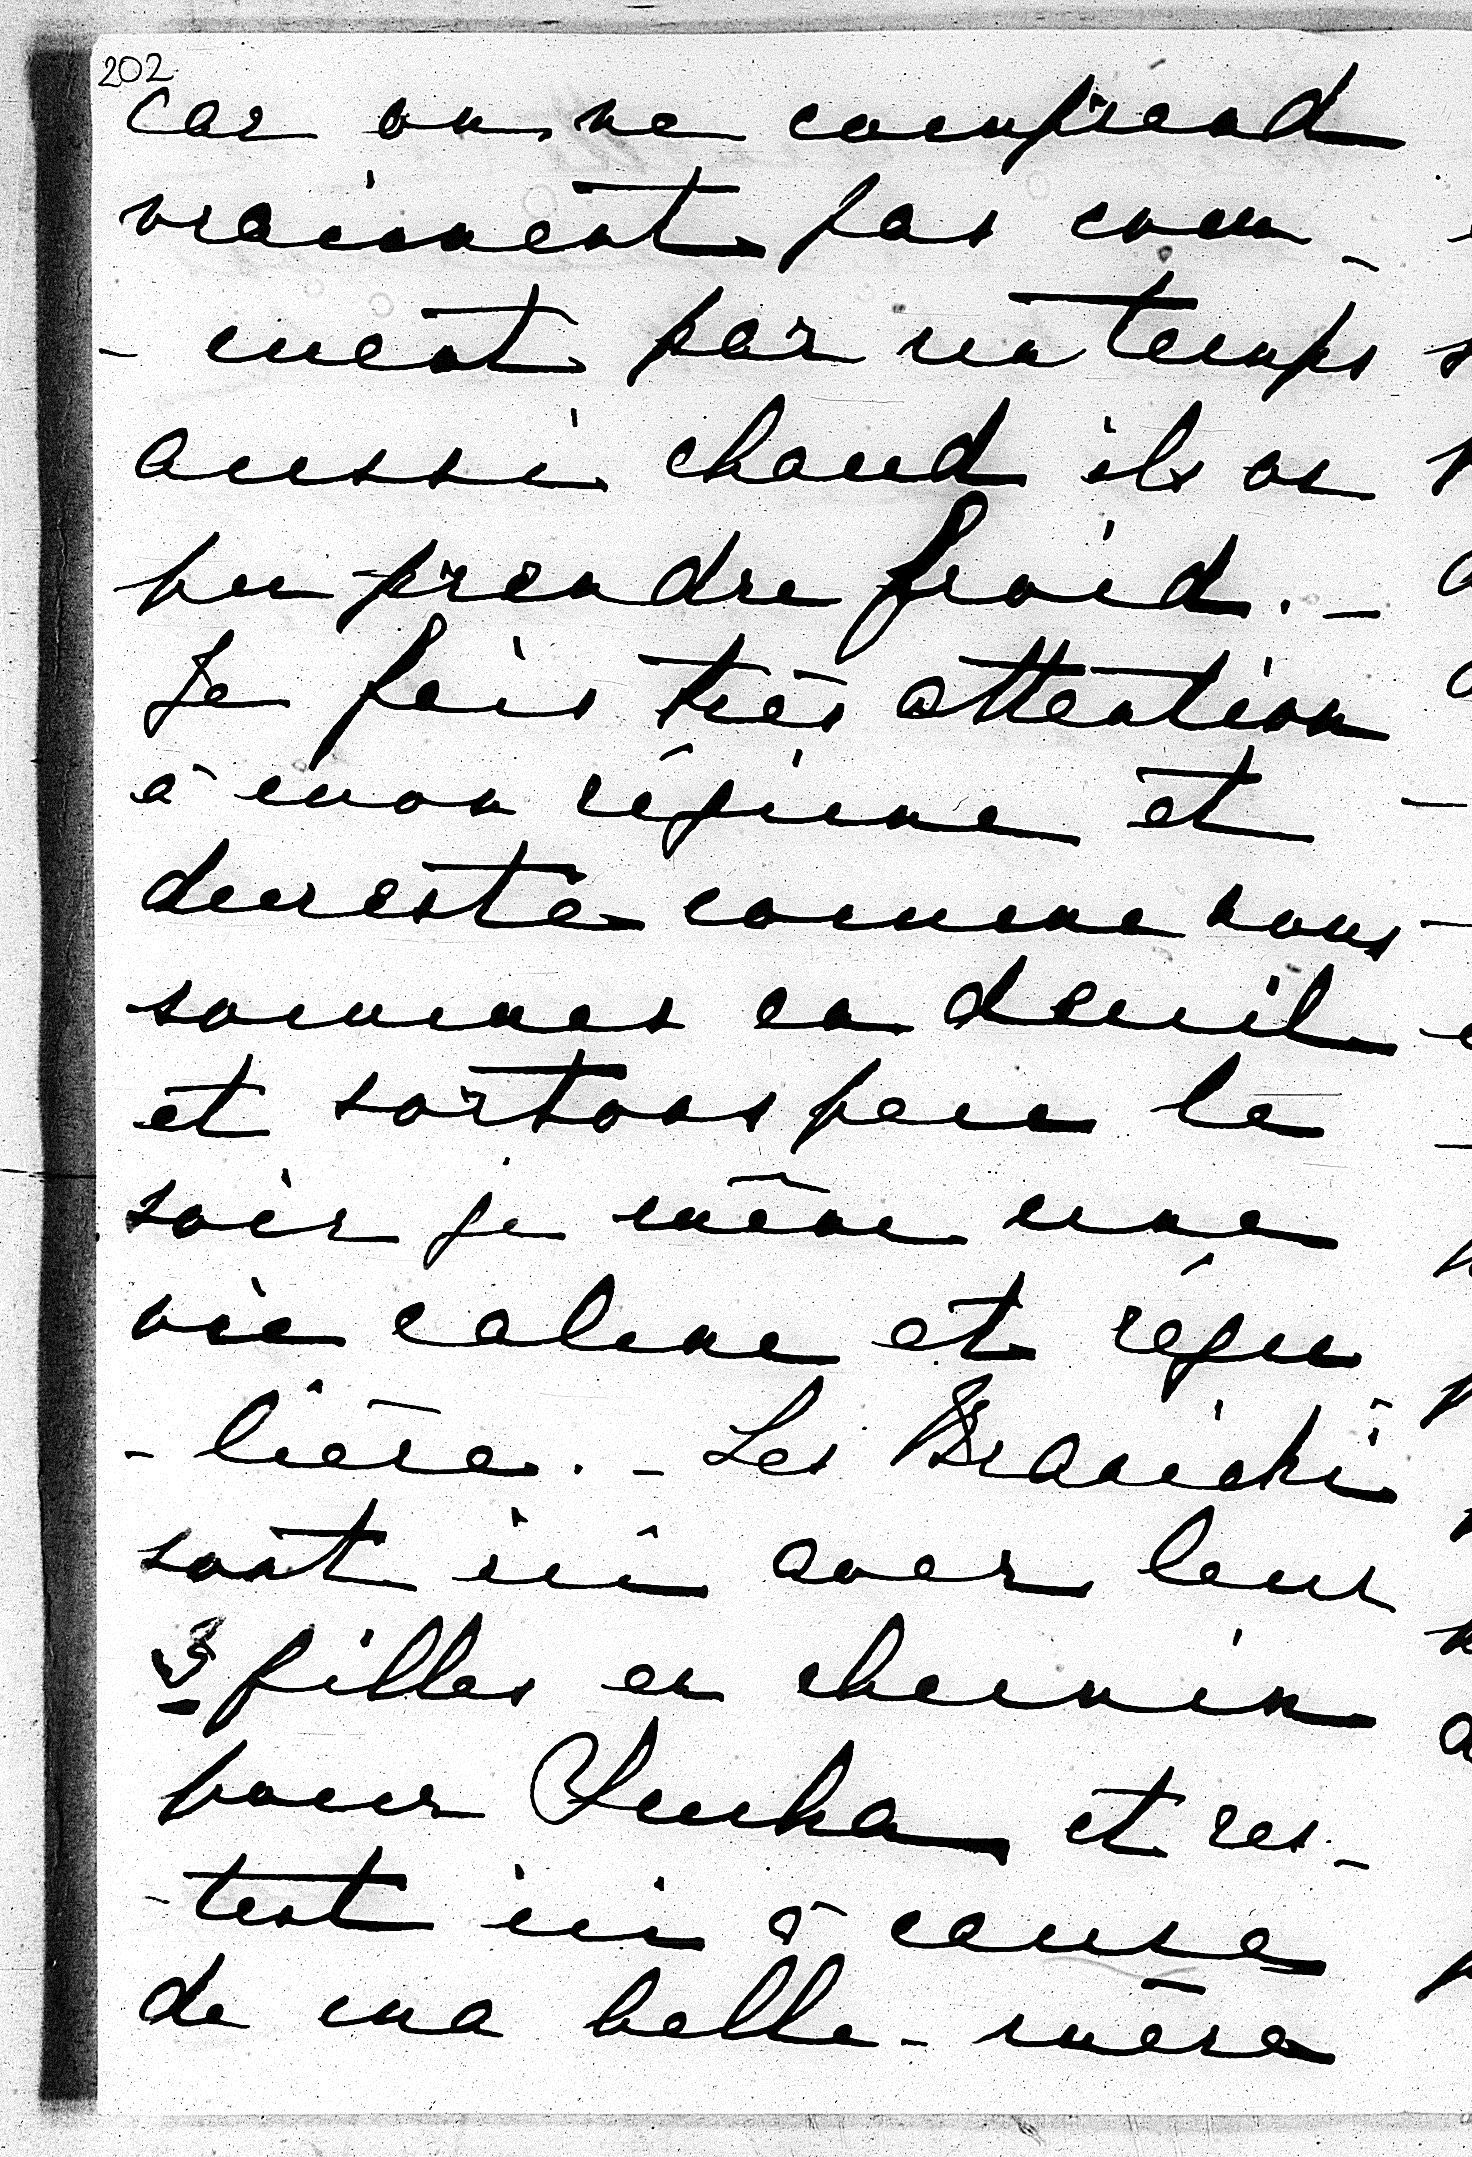 202
car on ne comprend
vraiment pas com-
-ment par un temps
aussi chaud ils on
pu prendre froid. -
Je fais très attention
à mon régime et
dureste comme nous
sommes en deuil
et sortons peu le
soir je mène une
vie calme et régu
-lière. - Les Branicki
sont ici avec leur
3 filles en chemin
pour Sucha et res-
-tent ici à cause
de ma belle-mère